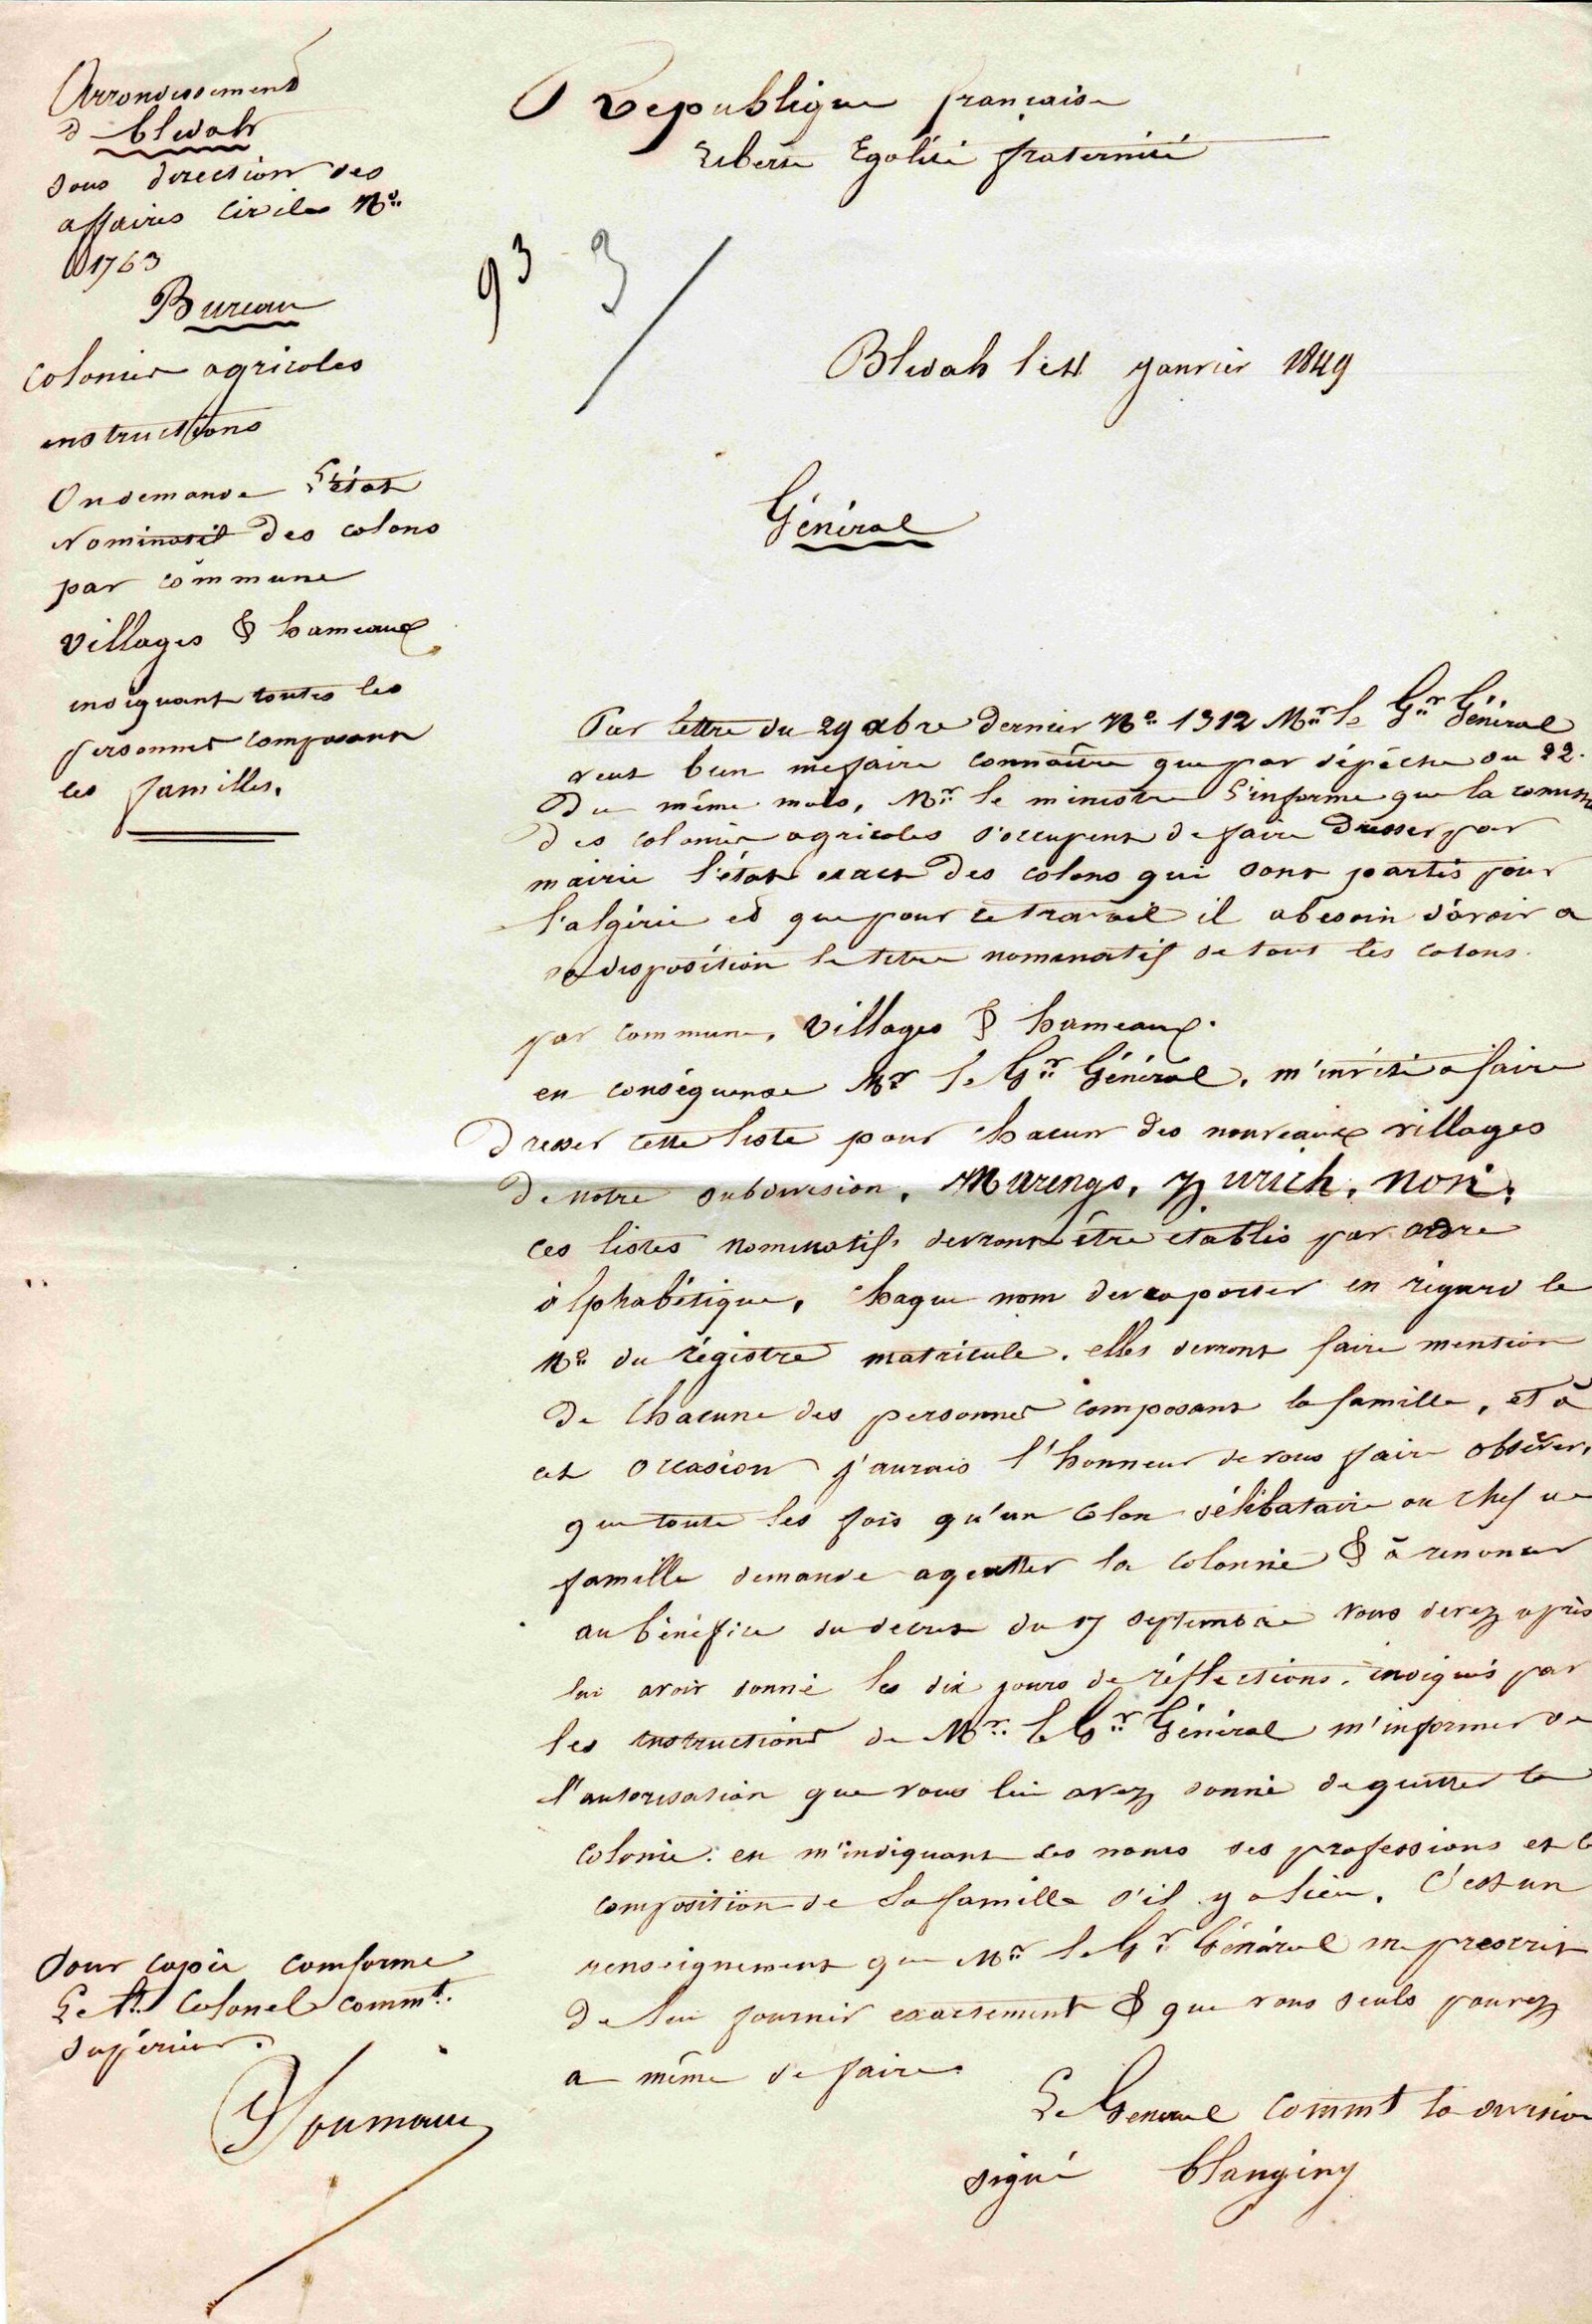 Arrondissement
de blidah
sous direction des
affaires Civiles No
1763
Bureau
colonies agricoles
instructions
On demande L'état
Nominatif des colons
par commune
villages & hameaux
indiquant toutes les
personnes composant
les familles.
Republique française
Liberté Egalité fraternité
93 3
Blidah le 4 janvier 1849
Général
Par lettre du 29 xbre dernier No 1312 Mr le Gr Général
veut bien me faire connaître que par dépêche du 22.
Du même mois, Mr le ministre l'informe que la
des colonies agricoles s'occupent de faire dresser par
mairie l'état exact des colons qui sont partis pour
l'algérie et que pour ce travail il a besoin d'avoir a
sa disposition le titre nominatif de tout les colons.
par commune, villages & hameaux.
en conséquence Mr le Gr Général, m'invite a faire
Dresser cette liste pour chacun des nouveaux villages
De notre subdivision, Marengo, Zurich,
ces listes nominatifs devront être etablis par ordre
alphabétique, chaque nom devra porter en regard le
No du régistre matricule. elles devront faire mention
de Chacune des personnes composant la famille, et à
cet occasion j'aurais l'honneur de vous faire obsérver,
que toute les fois qu'un Colon sélibataire ou chef de
famille demande a quitter la colonnie & à renoncer
au bénéfice du decret du 17 septembre vous devez après
lui avoir donné les dix jours de réflections, indiqués par
les instructions de Mr le Gr Général m'informer de
l'autorisation que vous lui avez donné de quitter la
colonie. en m'indiquant les noms ses professions et l
composition de sa famille s'il y a lieu. C'est un
renseignement que Mr le Gr Général me prescrit
De lui fournir exactement & que vous seuls pouvez
a même de faire.
Le General commt la division
signé blangini
Pour copie comforme
Le Lt Colonel commt
supérieur.